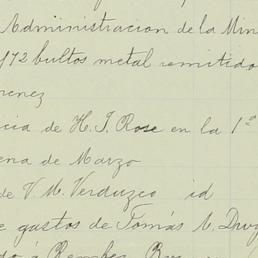 Administracion de la Min
172 bultos metal remitido
menez
cia de H. J. Rose en la 1ª
ena de Marzo
de V. M. Verduzco id
e gastos de Tomás